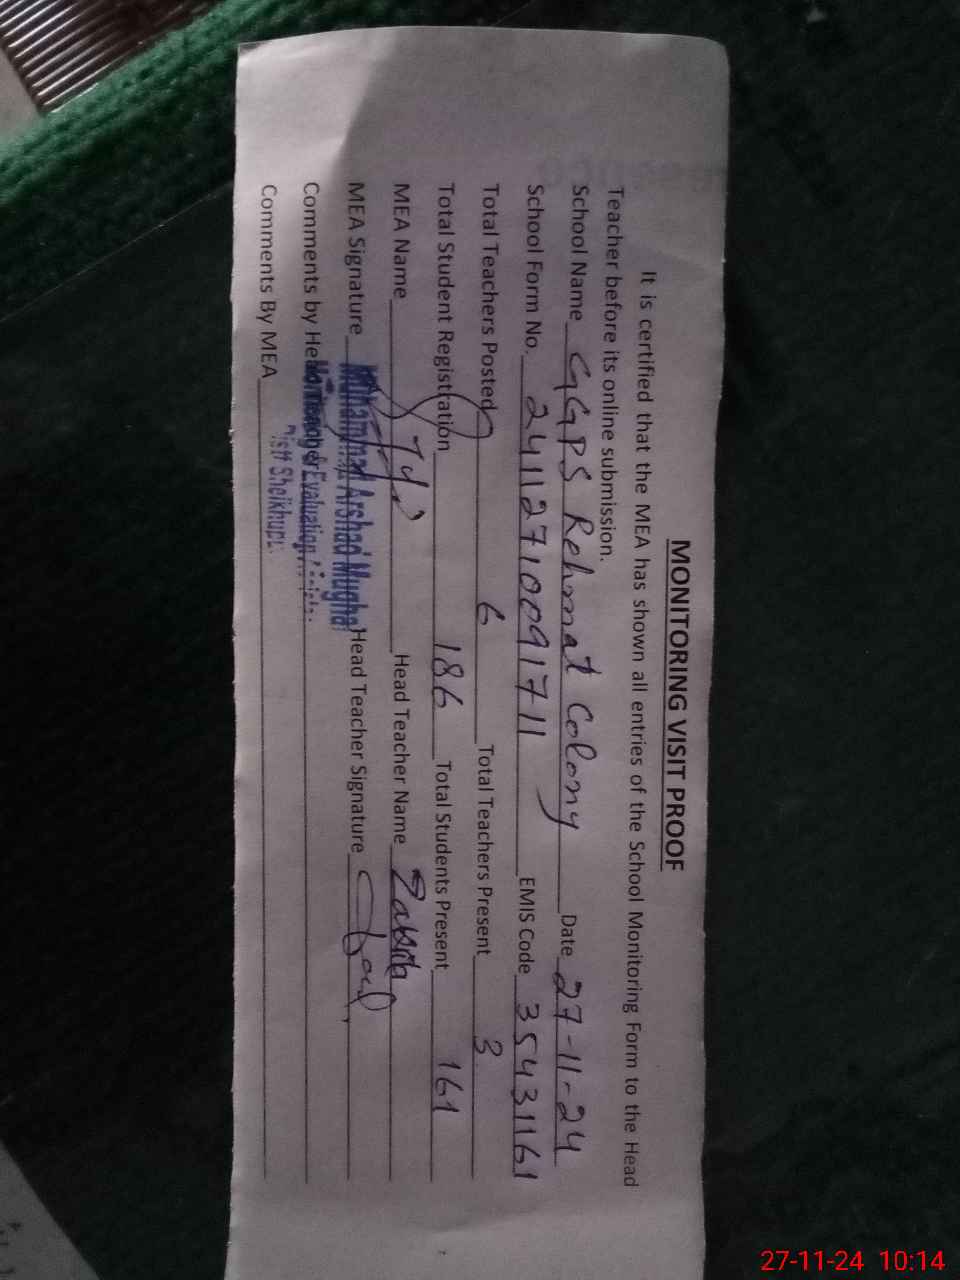 MONITORING VISIT PROOF
It is certified that the MEA has shown all entries of the School Monitoring Form to the Head
Teacher before its online submission.
School Name GGPS Rehmat Colony Date 27-11-24
School Form No. 24112710091711 EMIS Code 35431161
Total Teachers Posted 6 Total Teachers Present 3
Total Student Registration 186 Total Students Present 161
MEA Name Head Teacher Name
MEA Signature Head Teacher Signature
Muhammad Arshad Mughal
Comments by Head Teacher
Evaluation
Distt Sheikhupu
Comments By MEA
27-11-24 10:14